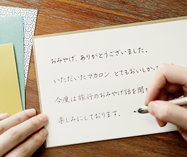 おみやげ、ありがとうございました。
いただいたマカロン とてもおいしかっ
今度は旅行のおみやげ話を聞
楽しみにしております。